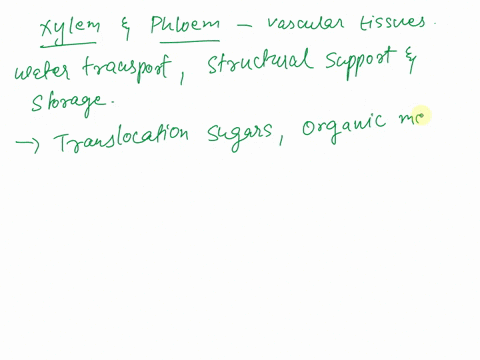 Xylem & Phloem - vascular tissues.
water transport, Structural Support &
Storage.
→ Translocation Sugars, Organic